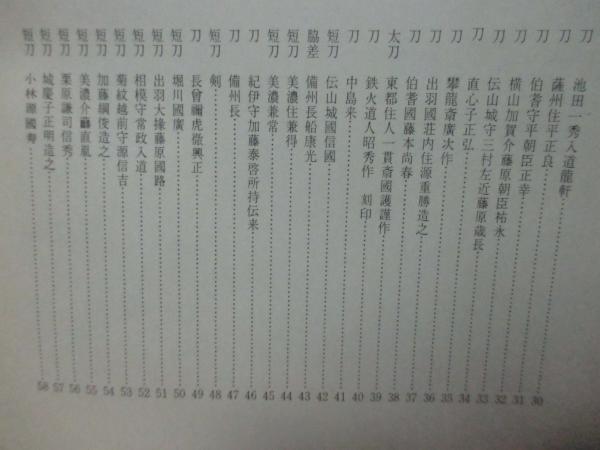 刀 池田一秀入道龍軒……30
刀 薩州住平正良……31
刀 伯耆守平朝臣正幸……32
刀 横山加賀介藤原朝臣祐永……33
刀 伝山城守三村左近藤原蔵長……33
刀 直心子正弘……34
刀 攀龍斎廣次作……35
刀 出羽國荘内住源重勝造之……36
刀 伯耆國藤本尚春……37
太刀 東都住人一貫斎國護謹作……38
刀 鉄火道人昭秀作 刻印……39
刀 中島来……40
短刀 伝山城國信國……41
脇差 備州長船康光……42
短刀 美濃住兼得……43
短刀 美濃兼常……44
刀 紀伊守加藤泰啓所持伝来……46
刀 備州長……47
短刀 剣……48
刀 長曾禰虎徹興正……49
短刀 堀川國廣……50
短刀 出羽大掾藤原國路……51
短刀 相模守常政入道……52
短刀 菊紋越前守源信吉……53
短刀 加藤綱俊造之……54
短刀 美濃介直胤……55
短刀 栗原謙司信秀……56
短刀 城慶子正明造之……57
短刀 小林源國寿……58